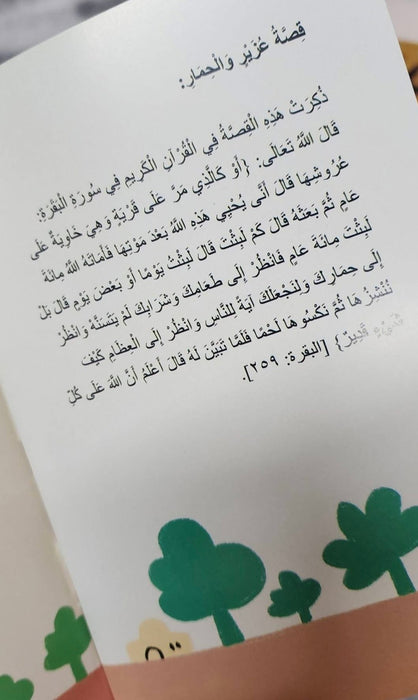 قِصَّةُ عُزَيْرٍ وَالْحِمَارِ:
ذُكِرَتْ هَذِهِ الْقِصَّةُ فِي الْقُرْآنِ الْكَرِيمِ فِي سُورَةِ الْبَقَرَةِ:
قَالَ اللَّهُ تَعَالَى: {أَوْ كَالَّذِي مَرَّ عَلَى قَرْيَةٍ وَهِيَ خَاوِيَةٌ عَلَى
عُرُوشِهَا قَالَ أَنَّى يُحْيِي هَذِهِ اللَّهُ بَعْدَ مَوْتِهَا فَأَمَاتَهُ اللَّهُ مِائَةَ
عَامٍ ثُمَّ بَعَثَهُ قَالَ كَمْ لَبِثْتَ قَالَ لَبِثْتُ يَوْمًا أَوْ بَعْضَ يَوْمٍ قَالَ بَلْ
لَبِثْتَ مِائَةَ عَامٍ فَانْظُرْ إِلَى طَعَامِكَ وَشَرَابِكَ لَمْ يَتَسَنَّهْ وَانْظُرْ
إِلَى حِمَارِكَ وَلِنَجْعَلَكَ آيَةً لِلنَّاسِ وَانْظُرْ إِلَى الْعِظَامِ كَيْفَ
نُنْشِزُهَا ثُمَّ نَكْسُوهَا لَحْمًا فَلَمَّا تَبَيَّنَ لَهُ قَالَ أَعْلَمُ أَنَّ اللَّهَ عَلَى كُلِّ
شَيْءٍ قَدِيرٌ} [البقرة: ٢٥٩].